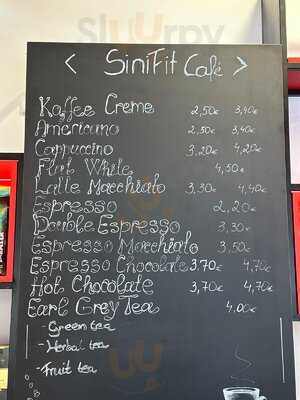 Sluurpy
< SiniFit Café >
Kaffee Creme 2,50€ 3,40€
Americano 2,50€ 3,40€
Cappuccino 3,20€ 4,20€
Flat White 4,50€
Latte Macchiato 3,30€ 4,40€
Espresso 2,20€
Double Espresso 3,30€
Espresso Macchiato 3,50€
Espresso Chocolate 3,70€ 4,70€
Hot Chocolate 3,70€ 4,70€
Earl Grey Tea 4,00€
- Green tea
- Herbal tea
- Fruit tea